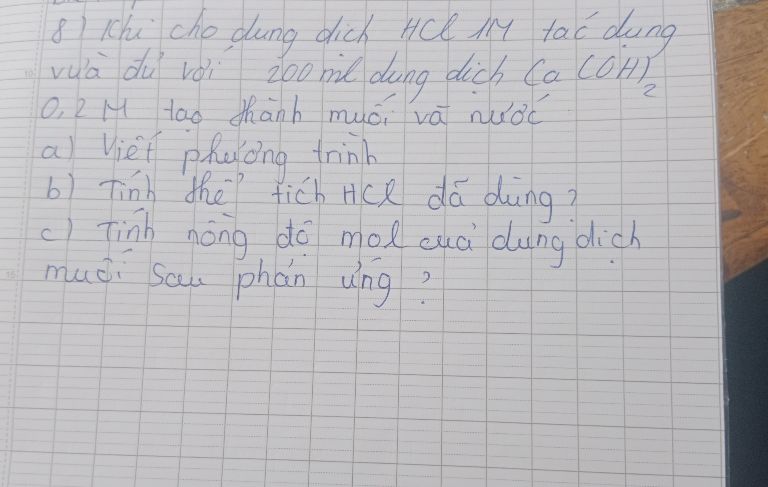 8) Khi cho dung dịch HCl 1M tác dụng
vừa đủ với 200 ml dung dịch Ca(OH)2
0,2 M tạo thành muối và nước
a) Viết phương trình
b) Tính thể tích HCl đã dùng?
c) Tính nồng độ mol của dung dịch
muối sau phản ứng?